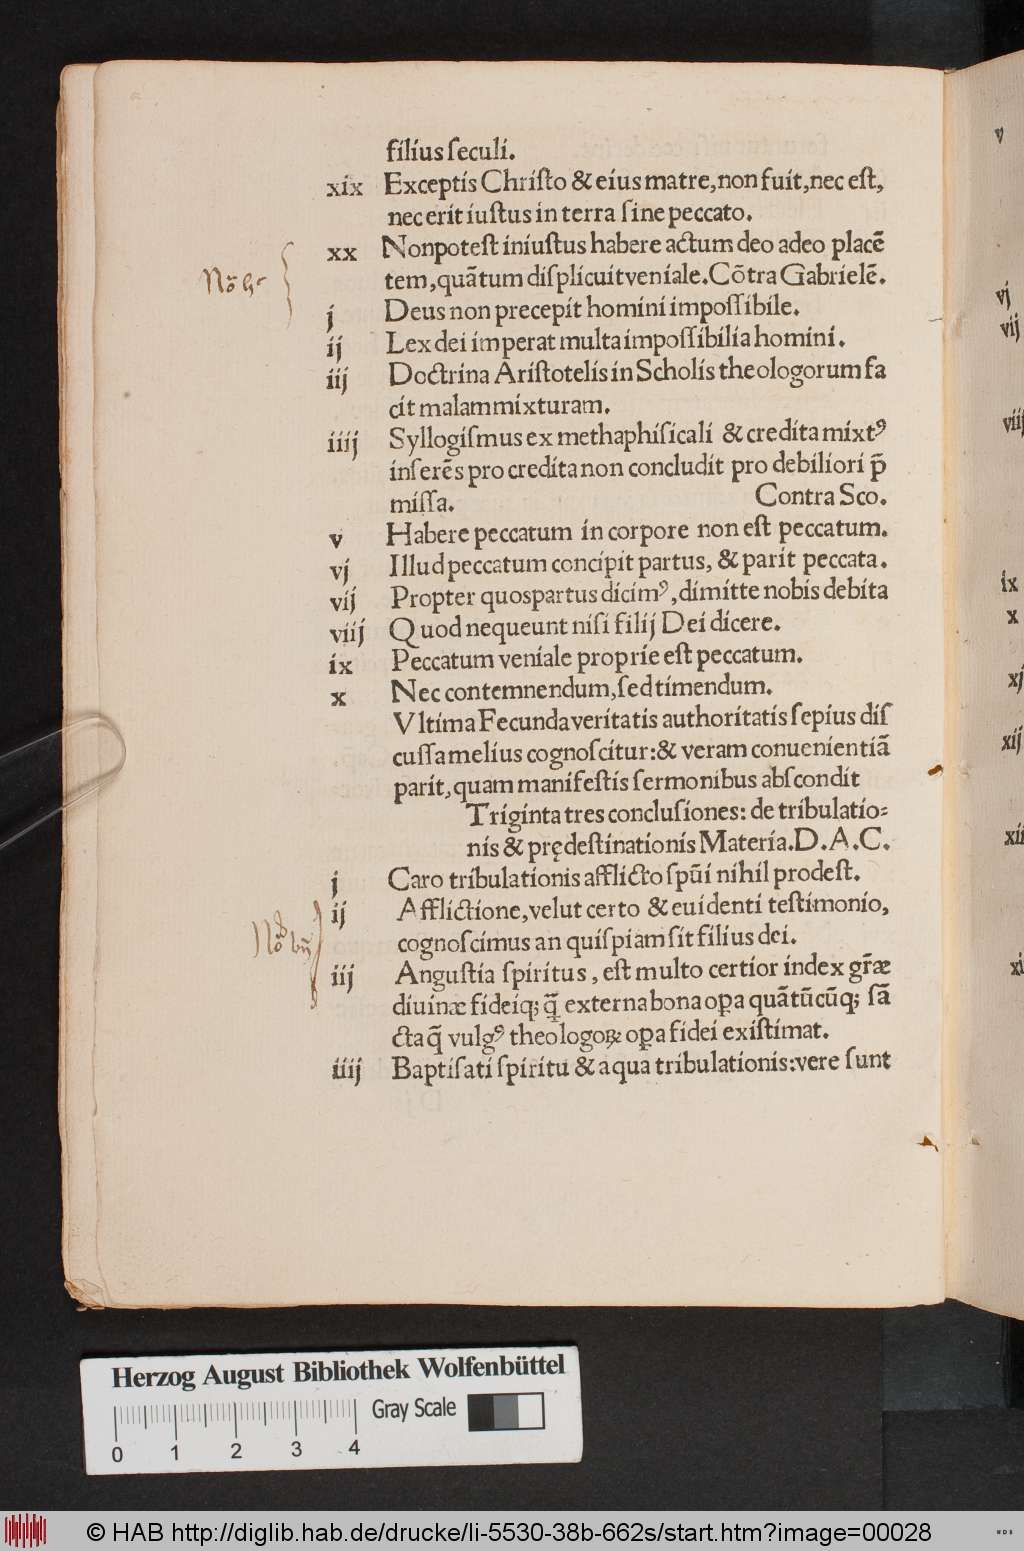 filius ſeculi.
xix Exceptis Chriſto & eius matre, non fuit, nec eſt,
nec erit iuſtus in terra ſine peccato.
xx Non poteſt iniuſtus habere actum deo adeo placē
tem, quātum diſplicuit veniale. Cōtra Gabrielē.
j Deus non precepit homini impoſſibile.
ij Lex dei imperat multa impoſſibilia homini.
iij Doctrina Ariſtotelis in Scholis theologorum fa
cit malam mixturam.
iiij Syllogiſmus ex methaphiſicali & credita mixtꝰ
inferēs pro credita non concludit pro debiliori p̄
miſſa. Contra Sco.
v Habere peccatum in corpore non eſt peccatum.
vj Illud peccatum concipit partus, & parit peccata.
vij Propter quos partus dicimꝰ, dimitte nobis debita
viij Quod nequeunt niſi filij Dei dicere.
ix Peccatum veniale proprie eſt peccatum.
x Nec contemnendum, ſed timendum.
Vltima Fecunda veritatis authoritatis ſepius diſ
cuſſa melius cognoſcitur: & veram conuenientiā
parit, quam manifeſtis ſermonibus abſcondit
Triginta tres concluſiones: de tribulatio⸗
nis & prędeſtinationis Materia. D. A. C.
j Caro tribulationis afflicto ſpūi nihil prodeſt.
ij Afflictione, velut certo & euidenti teſtimonio,
cognoſcimus an quiſpiam ſit filius dei.
iij Anguſtia ſpiritus, eſt multo certior index gr̄æ
diuinæ fideiq; q̄ externa bona oꝑa quātūcūq; ſā
cta q̄ vulgꝰ theologoꝝ oꝑa fidei exiſtimat.
iiij Baptiſati ſpiritu & aqua tribulationis: vere ſunt
v
vj
vij
viij
ix
x
xj
xij
xii
xi
Herzog August Bibliothek Wolfenbüttel
Gray Scale
0 1 2 3 4
© HAB http://diglib.hab.de/drucke/li-5530-38b-662s/start.htm?image=00028